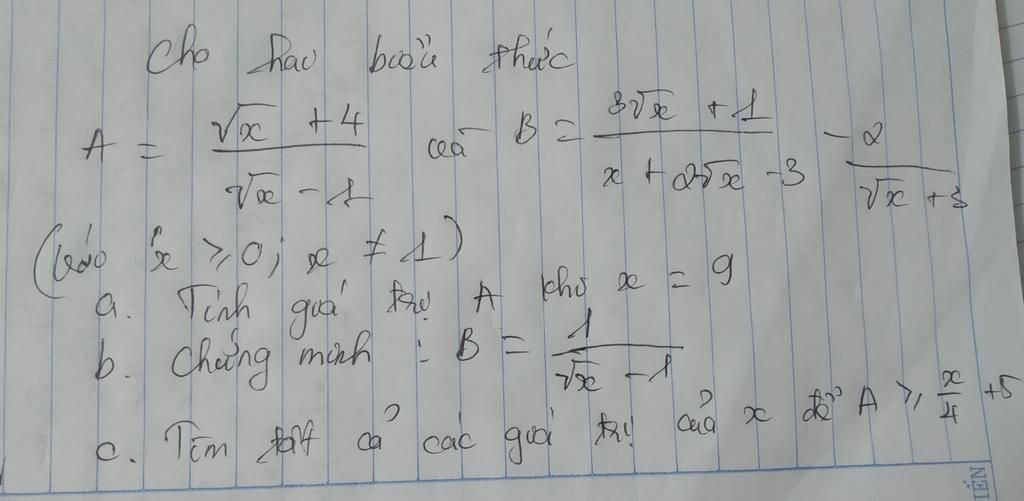 Cho hai biểu thức
A = (√x + 4)/(√x - 1) và B = (3√x + 1)/(x + 2√x - 3) - 2/(√x + 3)
(với x ≥ 0; x ≠ 1)
a. Tính giá trị A khi x = 9
b. Chứng minh : B = 1/(√x - 1)
c. Tìm tất cả các giá trị của x để A ≥ x/4 + 5
IẾN